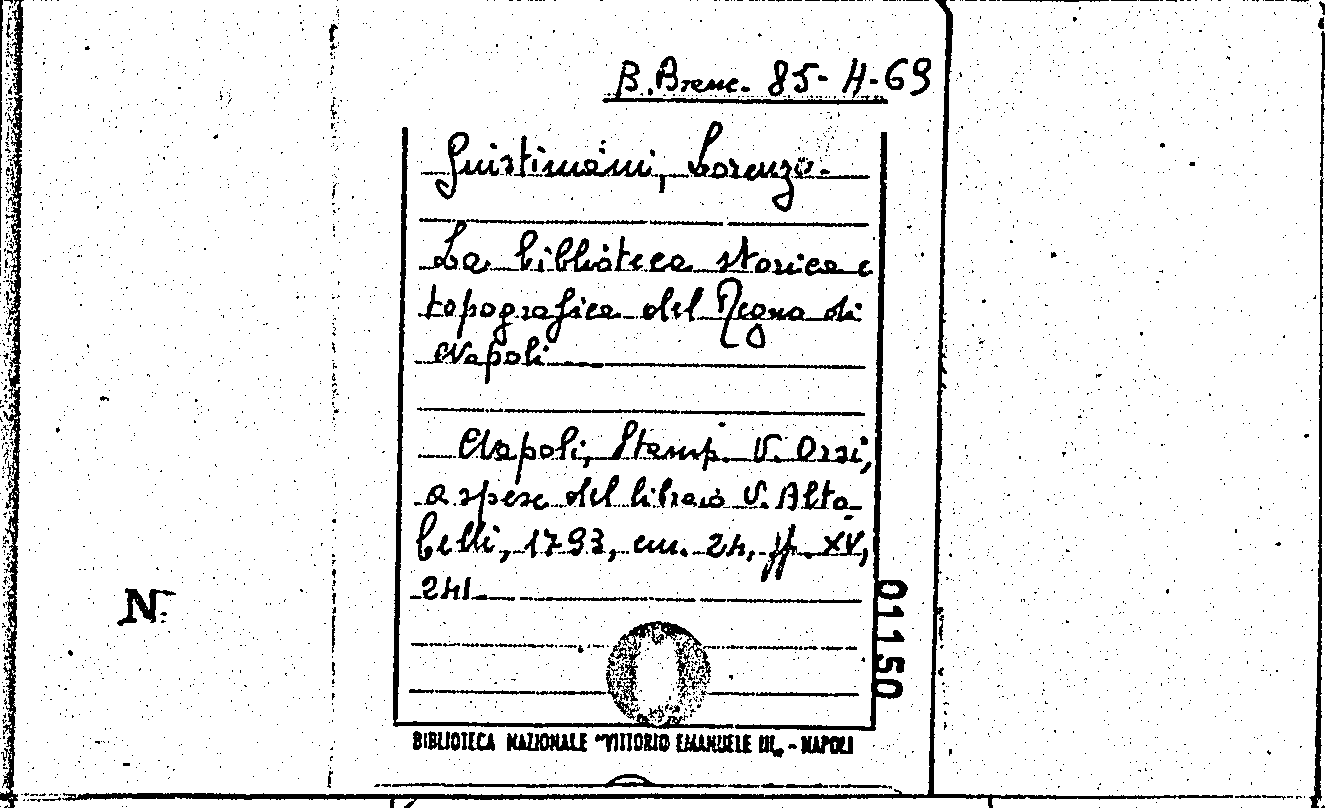 B. Branc. 85-H-69
Guistiniani, Lorenzo.
La biblioteca storica e
topografica del Regno di
Napoli
Napoli, Stamp. V. Orsi,
a spese del libraio V. Alto-
belli, 1793, cm. 24, pp. XV,
241
01150
N.
BIBLIOTECA NAZIONALE "VITTORIO EMANUELE III„ - NAPOLI